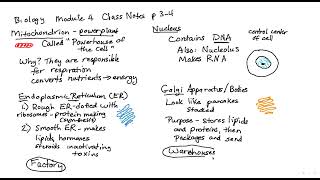 Biology Module 4 Class Notes p 3-4
Mitochondrion - powerplant
Called "Powerhouse of
the Cell"
Why? They are responsible
for respiration
converts nutrients → energy
Endoplasmic Reticulum (ER)
1) Rough ER - dotted with
ribosomes - protein making
(synthesis)
2) Smooth ER - makes
lipids, hormones
steroids, inactivating
toxins
Factory
Nucleus
Contains DNA
Also: Nucleolus
Makes RNA
control center
of cell
Golgi Apparatus/Bodies
Look like pancakes
stacked
Purpose - stores lipids
and proteins, then
Packages and send
Warehouses